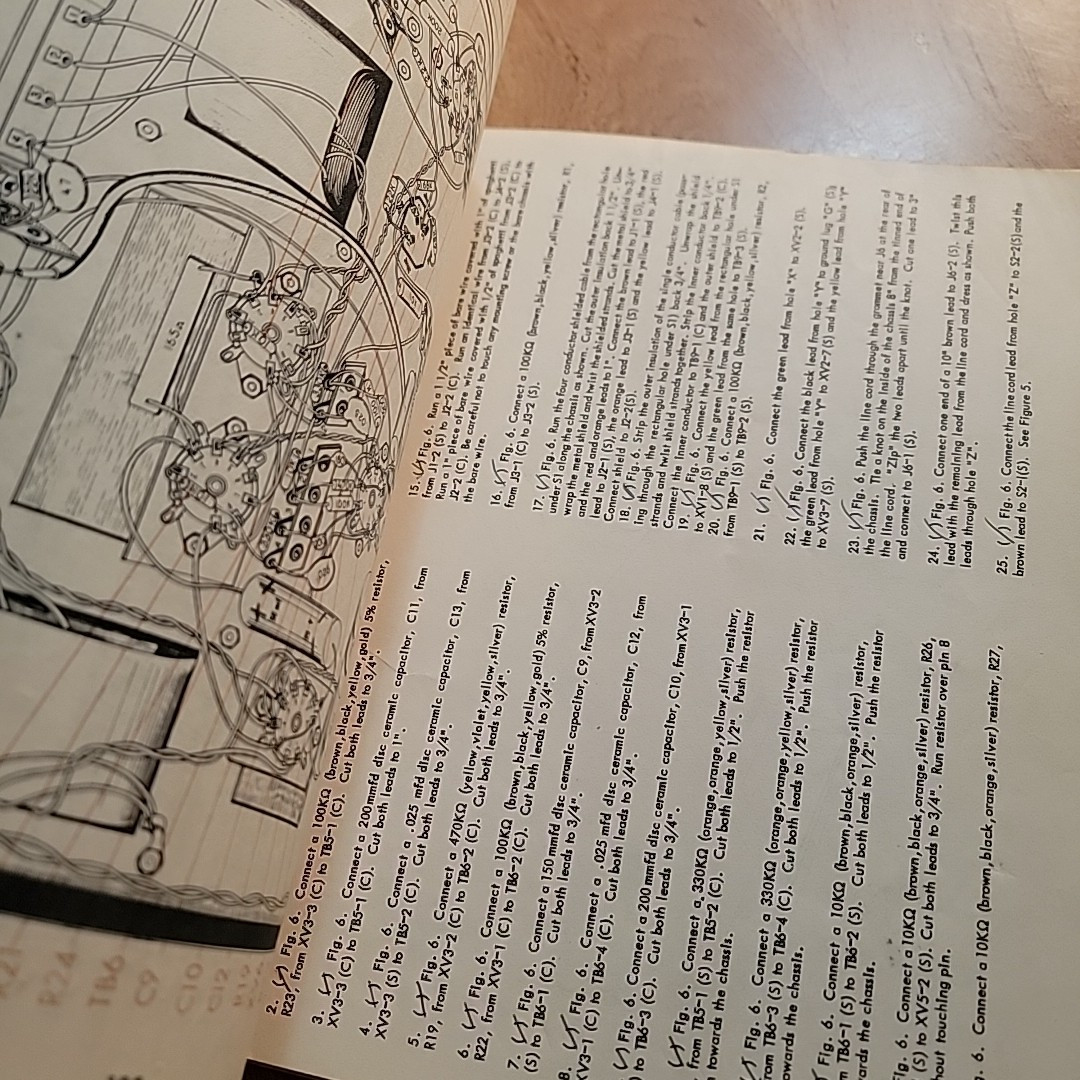 2. Fig. 6. Connect a 100KΩ (brown,black,yellow,gold) 5% resistor,
R23, from XV3-3 (C) to TB5-1 (C). Cut both leads to 3/4".
3. Fig. 6. Connect a 200mmfd disc ceramic capacitor, C11, from
XV3-3 (C) to TB5-1 (C). Cut both leads to 1".
4. Fig. 6. Connect a .025 mfd disc ceramic capacitor, C13, from
XV3-3 (S) to TB5-2 (C). Cut both leads to 3/4".
5. Fig. 6. Connect a 470KΩ (yellow,violet,yellow,silver) resistor,
R19, from XV3-2 (C) to TB6-2 (C). Cut both leads to 3/4".
6. Fig. 6. Connect a 100KΩ (brown,black,yellow,gold) 5% resistor,
R22, from XV3-1 (C) to TB6-2 (C). Cut both leads to 3/4".
7. Fig. 6. Connect a 150 mmfd disc ceramic capacitor, C9, from XV3-2
(S) to TB6-1 (C). Cut both leads to 3/4".
8. Fig. 6. Connect a .025 mfd disc ceramic capacitor, C12, from
XV3-1 (C) to TB6-4 (C). Cut both leads to 3/4".
Fig. 6. Connect a 200 mmfd disc ceramic capacitor, C10, from XV3-1
) to TB6-3 (C). Cut both leads to 3/4".
Fig. 6. Connect a 330KΩ (orange,orange,yellow,silver) resistor,
from TB5-1 (S) to TB5-2 (C). Cut both leads to 1/2". Push the resistor
towards the chassis.
Fig. 6. Connect a 330KΩ (orange,orange,yellow,silver) resistor,
rom TB6-3 (S) to TB6-4 (C). Cut both leads to 1/2". Push the resistor
owards the chassis.
Fig. 6. Connect a 10KΩ (brown,black,orange,silver) resistor,
m TB6-1 (S) to TB6-2 (S). Cut both leads to 1/2". Push the resistor
vards the chassis.
ig. 6. Connect a 10KΩ (brown,black,orange,silver) resistor, R26,
(S) to XV5-2 (S). Cut both leads to 3/4". Run resistor over pin 8
hout touching pin.
. 6. Connect a 10KΩ (brown,black,orange,silver) resistor, R27,
15. Fig. 6. Run a 1 1/2" piece of bare wire covered with 1" of spaghetti
from J1-2 (S) to J2-2 (C). Run an identical wire from J2-2 (C) to J4-2 (S).
Run a 1" piece of bare wire covered with 1/2" of spaghetti from
J2-2 (C). Be careful not to touch any mounting screw or the bare chassis with
the bare wire.
16. Fig. 6. Connect a 100KΩ (brown,black,yellow,silver) resistor, R1,
from J3-1 (C) to J3-2 (S).
17. Fig. 6. Run the four conductor shielded cable from the rectangular hole
under S1 along the chassis as shown. Cut the outer insulation back 1 1/2". Un-
wrap the metal shield and twist the shielded strands. Cut the metal shield to 3/4"
and the red and orange leads to 1". Connect the brown lead to J1-1 (S), the red
lead to J2-1 (S), the orange lead to J3-1 (S) and the yellow lead to J4-1 (S).
Connect shield to J2-2(S).
18. Fig. 6. Strip the outer insulation of the single conductor cable
ing through the rectangular hole under S1) back 3/4". Unwrap the shield
strands and twist shield strands together. Strip the inner conductor back 1/4".
Connect the inner conductor to TB9-1 (C) and the outer shield to TB9-2 (C).
19. Fig. 6. Connect the yellow lead from the rectangular hole under S1
to XV1-8 (S) and the green lead from the same hole to TB9-3 (S).
20. Fig. 6. Connect a 100KΩ (brown,black,yellow,silver) resistor, R2,
from TB9-1 (S) to TB9-2 (S).
21. Fig. 6. Connect the green lead from hole "X" to XV2-2 (S).
22. Fig. 6. Connect the black lead from hole "Y" to ground lug "G" (S)
the green lead from hole "Y" to XV2-7 (S) and the yellow lead from hole "Y"
to XV3-7 (S).
23. Fig. 6. Push the line cord through the grommet near J6 at the rear of
the chassis. Tie a knot on the inside of the chassis 8" from the tinned end of
the line cord. "Zip" the two leads apart until the knot. Cut one lead to 3"
and connect to J6-1 (S).
24. Fig. 6. Connect one end of a 10" brown lead to J6-2 (S). Twist this
lead with the remaining lead from the line cord and dress as shown. Push both
leads through hole "Z".
25. Fig. 6. Connect the line cord lead from hole "Z" to S2-2(S) and the
brown lead to S2-1(S). See Figure 5.
R24
TB6
C9
C10
C12